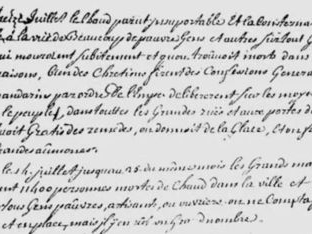 Juillet le chaud parut insuportable Et la Consterna
à la vüe de Beaucoup de pauvres Gens et autres surtout G
qui mouroient subitement et qu'on trouvoit morts dans
maisons, bien des Chretiens firent des Confessions General
mandarins par ordre de l'Emp. delibererent sur les moye
le peuple, dans touttes les Grandes rües et aux portes d
Gratis des remedes, on donnoit de la Glace, et on fi
Grandes aumones.
le 14 juillet jusqu'au 25 du même mois les Grand ma
11400 personnes mortes de Chaud dans la ville et
tous Gens pauvres, artisans, ou ouvriers on ne Compta
et en place, mais il y en eût un Gr nombre.